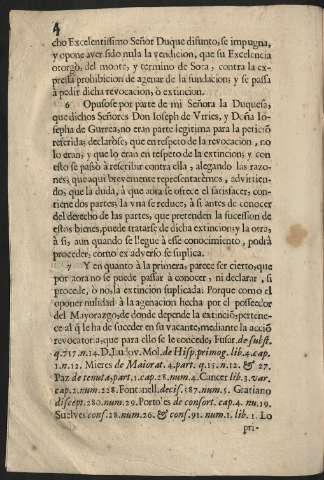 4
cho Excelentissimo Señor Duque difunto, se impugna,
y opone aver sido nula la vendicion, que su Excelencia
otorgò, del monte, y termino de Sora, contra la ex-
pressa prohibicion de agenar de la fundacion; y se passa
à pedir dicha revocacion, ò extincion.
6 Opusose por parte de mi Señora la Duquesa,
que dichos Señores Don Ioseph de Vrries, y Doña Io-
sepha de Gurrea, no eran parte legitima para la peticiõ
referida; declaròse, que en respeto de la revocacion, no
lo eran; y que lo eran en respeto de la extincion; y con
esto se passò à rescribir contra ella, alegando las razo-
nes, que aqui brevemente representarèmos, advirtien-
do, que la duda, à que aora se ofrece el satisfacer, con-
tiene dos partes; la vna se reduce, à si antes de conocer
del derecho de las partes, que pretenden la sucession de
estos bienes, puede tratarse de dicha extincion; y la otra,
à si, aun quando se llegue à esse conocimiento, podrà
proceder, como ex adverso se suplica.
7 Y en quanto à la primera, parece ser cierto, que
por aora no se puede passar à conocer, ni declarar, si
procede, ò no, la extincion suplicada: Porque como el
oponer nulidad à la agenacion hecha por el possedor
del Mayorazgo, de donde depende la extinciõ, pertene-
ce al q̃ le ha de suceder en su vacante, mediante la acciõ
revocatoria, que para ello se le concede, Fusar. de subst.
q. 717. n. 14. D. Ludov. Mol. de Hisp. primog. lib. 4. cap.
1. n. 12. Mieres de Maiorat. 4. part. q. 15. n. 12. & 27.
Paz de tenuta, part. 1. cap. 28. num. 4. Cancer lib. 3. var.
cap. 2. num. 228. Fontanell. decis. 387. num. 5. Gratiano
discept. 280. num. 29. Portoles de consort. cap. 4. nu. 19.
Suelves cons. 28. num. 26. & cons. 91. num. 1. lib. 1. Lo
pri-